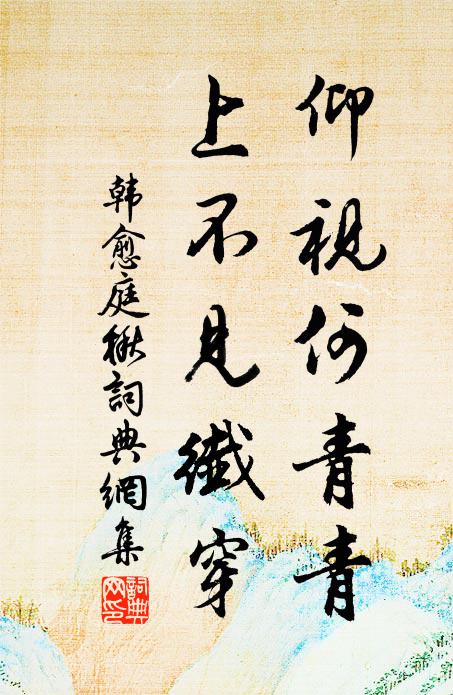 仰視何青青
上不見纖穿
韩愈庭楸詞典網集
詞典网印